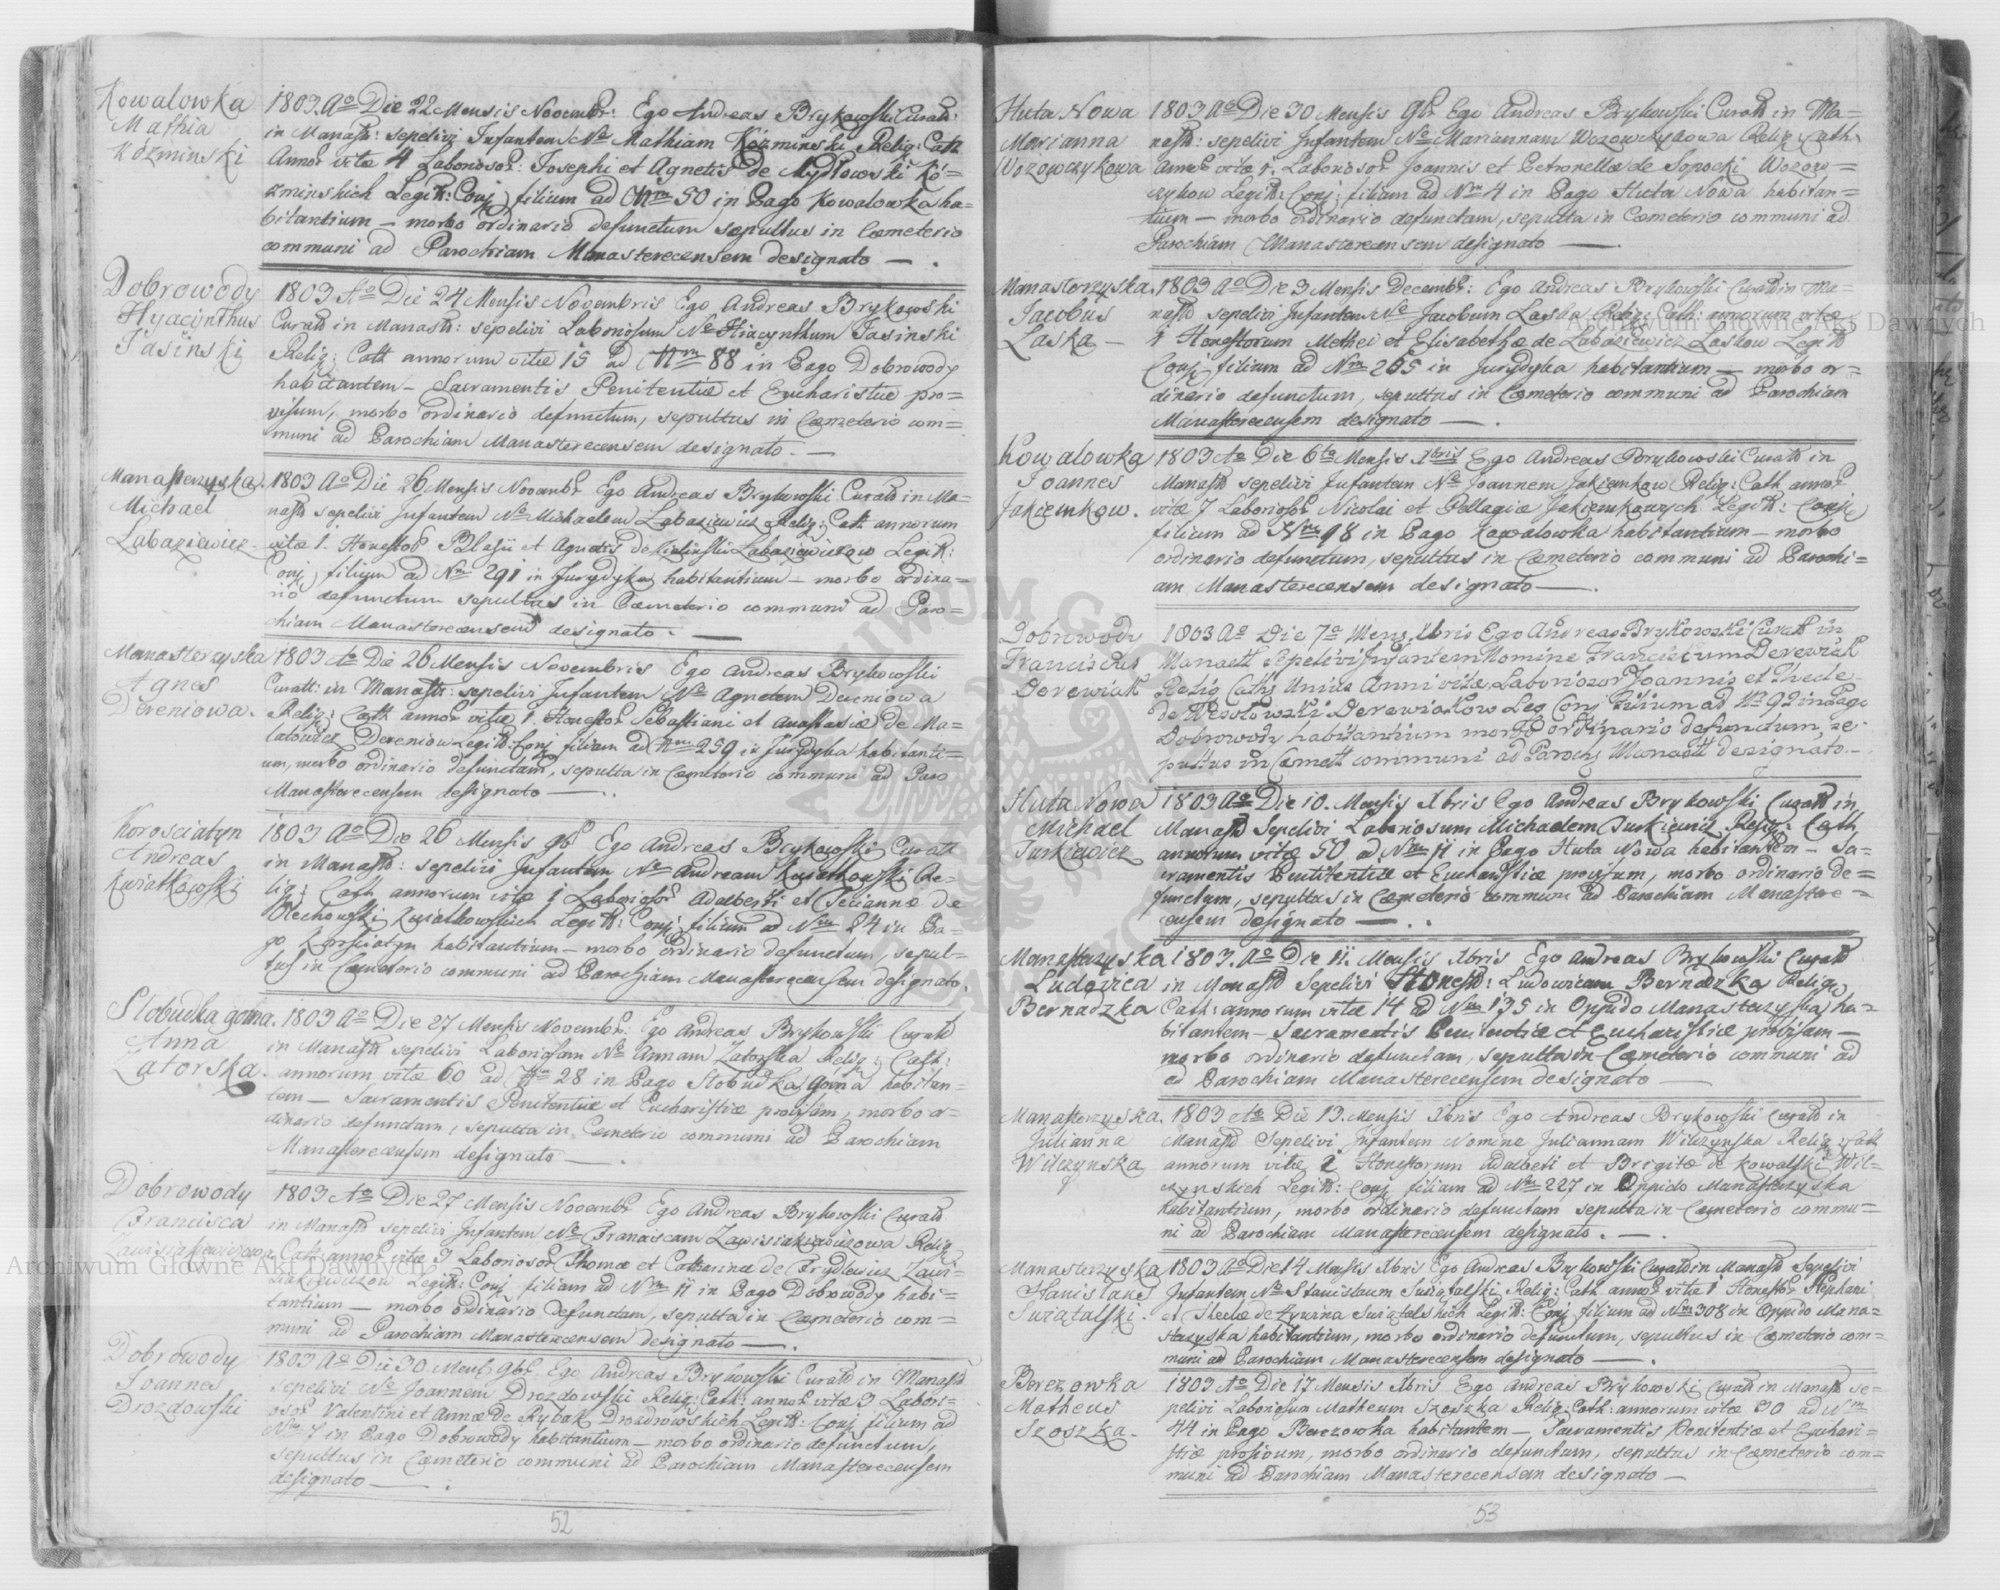 Kowalowka
Mathia
Kozminski
1803. Ao Die 22 Mensis Novembr: Ego Andreas Brykowski Curatt
in Manastt: sepelivi Infantem Ne Mathiam Kozminski Relig: Cath
Annor vitæ 4 Laboriosor: Josephi et Agnetis de Mydlowski Ko=
zminskich Legitt: Conj filium ad Nrm 50 in Pago Kowalowka ha=
bitantium — morbo ordinario defunctum sepultus in Cœmeterio
communi ad Parochiam Manasterecensem designato — .
Dobrowody
Hyacinthus
Jasinski
1803 Ao Die 24 Mensis Novembris Ego Andreas Brykowski
Curatt in Manastt: sepelivi Laboriosum Ne Hiacynthum Jasinski
Relig: Cath annorum vitæ 15 ad Nrm 88 in Pago Dobrowody
habitantem — Sacramentis Penitentiæ et Eucharistiæ pro=
visum, morbo ordinario defunctum, sepultus in Cœmeterio com=
muni ad Parochiam Manasterecensem designato. —
Manasterzyska.
Michael
Labaziewicz
1803 Ao Die 26 Mensis Novembr Ego Andreas Brykowski Curatt in Ma=
nastt sepelivi Infantem Ne Michaelem Labaziewicz Relig: Cath annorum
vitæ 1. Honestor Blasii et Agnetis de Labaziewiczow Legitt:
Conj filium ad Nrm 291 in Jurydyka habitantium — morbo ordina=
rio defunctum sepultus in Cœmeterio communi ad Paro=
chiam Manasterecensem designato. —
Manasterzyska
Agnes
Dereniowa.
1803 Ao Die 26 Mensis Novembris Ego Andreas Brykowski
Curatt: in Manastt: sepelivi Infantem Ne Agnetem Dereniowa
Relig: Cath annor vitæ 1. Honestor Sebastiani et Anastasiæ de Ma=
Dereniow Legitt: Conj filiam ad Nrm 259 in Jurydyka habitanti=
um, morbo ordinario defunctam, sepulta in Cœmeterio communi ad Paro
Manasterecensem designato — .
Korosciatyn
Andreas
Kwiatkowski
1803 Ao Die 26 Mensis 9br Ego Andreas Brykowski Curatt
in Manastt: sepelivi Infantem Ne Andream Kwiatkowski Re=
lig: Cath annorum vitæ 1 Laboriosor Adalberti et Mariannæ de
Olechowski Kwiatkowskich Legitt: Conj filium ad Nrm 24 in Pa=
go Korosciatyn habitantium — morbo ordinario defunctum, sepul=
tus in Cœmeterio communi ad Parochiam Manasterecensem designato.
Slobudka gorna.
Anna
Zatorska.
1803 Ao Die 27 Mensis Novembr: Ego Andreas Brykowski Curatt
in Manastt sepelivi Laboriosam Ne Annam Zatorska Relig: Cath:
annorum vitæ 60 ad Nrm 28 in Pago Slobudka gorna habitan=
tem — Sacramentis Penitentiæ et Eucharistiæ provisam, morbo or=
dinario defunctam, sepulta in Cœmeterio communi ad Parochiam
Manasterecensem designato — .
Dobrowody
Francisca
1803 Ao Die 27 Mensis Novembr Ego Andreas Brykowski Curatt
in Manastt sepelivi Infantem Ne Franciscam Zawisiakiewiczowa Relig
Cath annor vitæ 3 Laboriosor Thomæ et Catharinæ de Frydlewicz Zawi=
siakiewiczow Legitt: Conj filiam ad Nrm 11 in Pago Dobrowody habi=
tantium — morbo ordinario defunctam, sepulta in Cœmeterio com=
muni ad Parochiam Manasterecensem designato — .
Dobrowody
Joannes
Drozdowski
1803 Ao Die 30 Mens 9br Ego Andreas Brykowski Curatt in Manastt
sepelivi Ne Joannem Drozdowski Relig: Cath: annor vitæ 3 Labori=
osor Valentini et Annæ de Rybak Drozdowskich Legitt: Conj filium ad
Nrm 7 in Pago Dobrowody habitantium — morbo ordinario defunctum,
sepultus in Cœmeterio communi ad Parochiam Manasterecensem
designato — .
52
Huta Nowa
Marianna
Wozowczykowa
1803 Ao Die 30 Mensis 9br Ego Andreas Brykowski Curatt in Ma=
nastt: sepelivi Infantem Ne Mariannam Wozowczykowa Relig Cath
annor vitæ Laboriosor Joannis et Petronellæ de Sopocki Wozow=
czykow Legitt: Conj: filiam ad Nrm 4 in Pago Huta Nowa habitan=
tium — morbo ordinario defunctam, sepulta in Cœmeterio communi ad
Parochiam Manasterecensem designato — .
Manasterzyska.
Jacobus
Laska —
1803 Ao Die 3 Mensis Decembr: Ego Andreas Brykowski Curatt in Ma=
nastt sepelivi Infantem Ne Jacobum Laska Relig: Cath: annorum vitæ
Honestorum Mathei et Elisabethæ de Labaziewicz Laskow Legitt
Conj filium ad Nrm 265 in Jurydyka habitantium — morbo or=
dinario defunctum, sepultus in Cœmeterio communi ad Parochiam
Manasterecensem designato — .
Kowalowka
Joannes
Jakiemkow.
1803 Ao Die 6ta Mensis Xbris Ego Andreas Brykowski Curatt in
Manastt sepelivi Infantem Ne Joannem Jakiemkow Relig: Cath annor
vitæ 7 Laboriosor Nicolai et Pellagiæ Jakiemkowych Legitt: Conj
filium ad Nrm 98 in Pago Kowalowka habitantium — morbo
ordinario defunctum, sepultus in Cœmeterio communi ad Parochi=
am Manasterecensem designato — .
Dobrowody
Franciscus
Derewiak
1803 Ao Die 7a Mens Xbris Ego Andreas Brykowski Curatt in
Manastt Sepelivi Infantem Nomine Franciscum Derewiak
Relig Cath Unius Anni vitæ Laboriosor Joannis et Theclæ
de Wesolowski Derewiakow Leg Conj Filium ad Nr 92 in Pago
Dobrowody habitantium morbo ordinario defunctum, se=
pultus in Cœmett communi ad Paroch Manastt designato —
Huta Nowa
Michael
Turkiewicz
1803 Ao Die 10. Mensis Xbris Ego Andreas Brykowski Curatt in
Manastt Sepelivi Laboriosum Michaelem Turkiewicz Relig. Cath
annorum vitæ 50 ad Nrm 11 in Pago Huta Nowa habitantem — Sa=
cramentis Penitentiæ et Eucharistiæ provisum, morbo ordinario de=
functum, sepultus in Cœmeterio communi ad Parochiam Manastere=
censem designato — .
Manasterzyska
Ludovica
Bernadzka
1803. Ao Die 11. Mensis Xbris Ego Andreas Brykowski Curatt
in Manastt Sepelivi Honestt: Ludovicam Bernadzka Relig
Cath: annorum vitæ 14 ad Nrm 135 in Oppido Manasterzyska ha=
bitantem — Sacramentis Penitentiæ et Eucharistiæ provisam —
morbo ordinario defunctam, sepulta in Cœmeterio communi ad
ad Parochiam Manasterecensem designato —
Manasterzyska.
Julianna
Wilczynska
1803 Ao Die 13. Mensis Xbris Ego Andreas Brykowski Curatt in
Manastt Sepelivi Infantem Nomine Juliannam Wilczynska Relig Cath
annorum vitæ 2 Honestorum Adalberti et Brigitæ de Kowalski Wil=
czynskich Legitt: Conj filiam ad Nrm 227 in Oppido Manasterzyska
habitantium, morbo ordinario defunctam sepulta in Cœmeterio commu=
ni ad Parochiam Manasterecensem designato. — .
Manasterzyska
Stanislaus
Swiątalski.
1803 Ao Die 14 Mensis Xbris Ego Andreas Brykowski Curatt in Manastt Sepelivi
Infantem Ne Stanislaum Swiątalski Relig: Cath annor vitæ 1 Honestor Stephani
et Theclæ de Swiątalskich Legitt: Conj filium ad Nrm 308 in Oppido Mana=
sterzyska habitantium, morbo ordinario defunctum, sepultus in Cœmeterio com=
muni ad Parochiam Manasterecensem designato — .
Berezowka
Matheus
Szoszka.
1803 Ao Die 17 Mensis Xbris Ego Andreas Brykowski Curatt in Manastt se=
pelivi Laboriosum Matheum Szoszka Relig: Cath: annorum vitæ 30 ad Nrm
44 in Pago Berezowka habitantem — Sacramentis Penitentiæ et Euchari=
stiæ provisum, morbo ordinario defunctum, sepultus in Cœmeterio com=
muni ad Parochiam Manasterecensem designato —
53
Archiwum Główne Akt Dawnych
Archiwum Główne Akt Dawnych